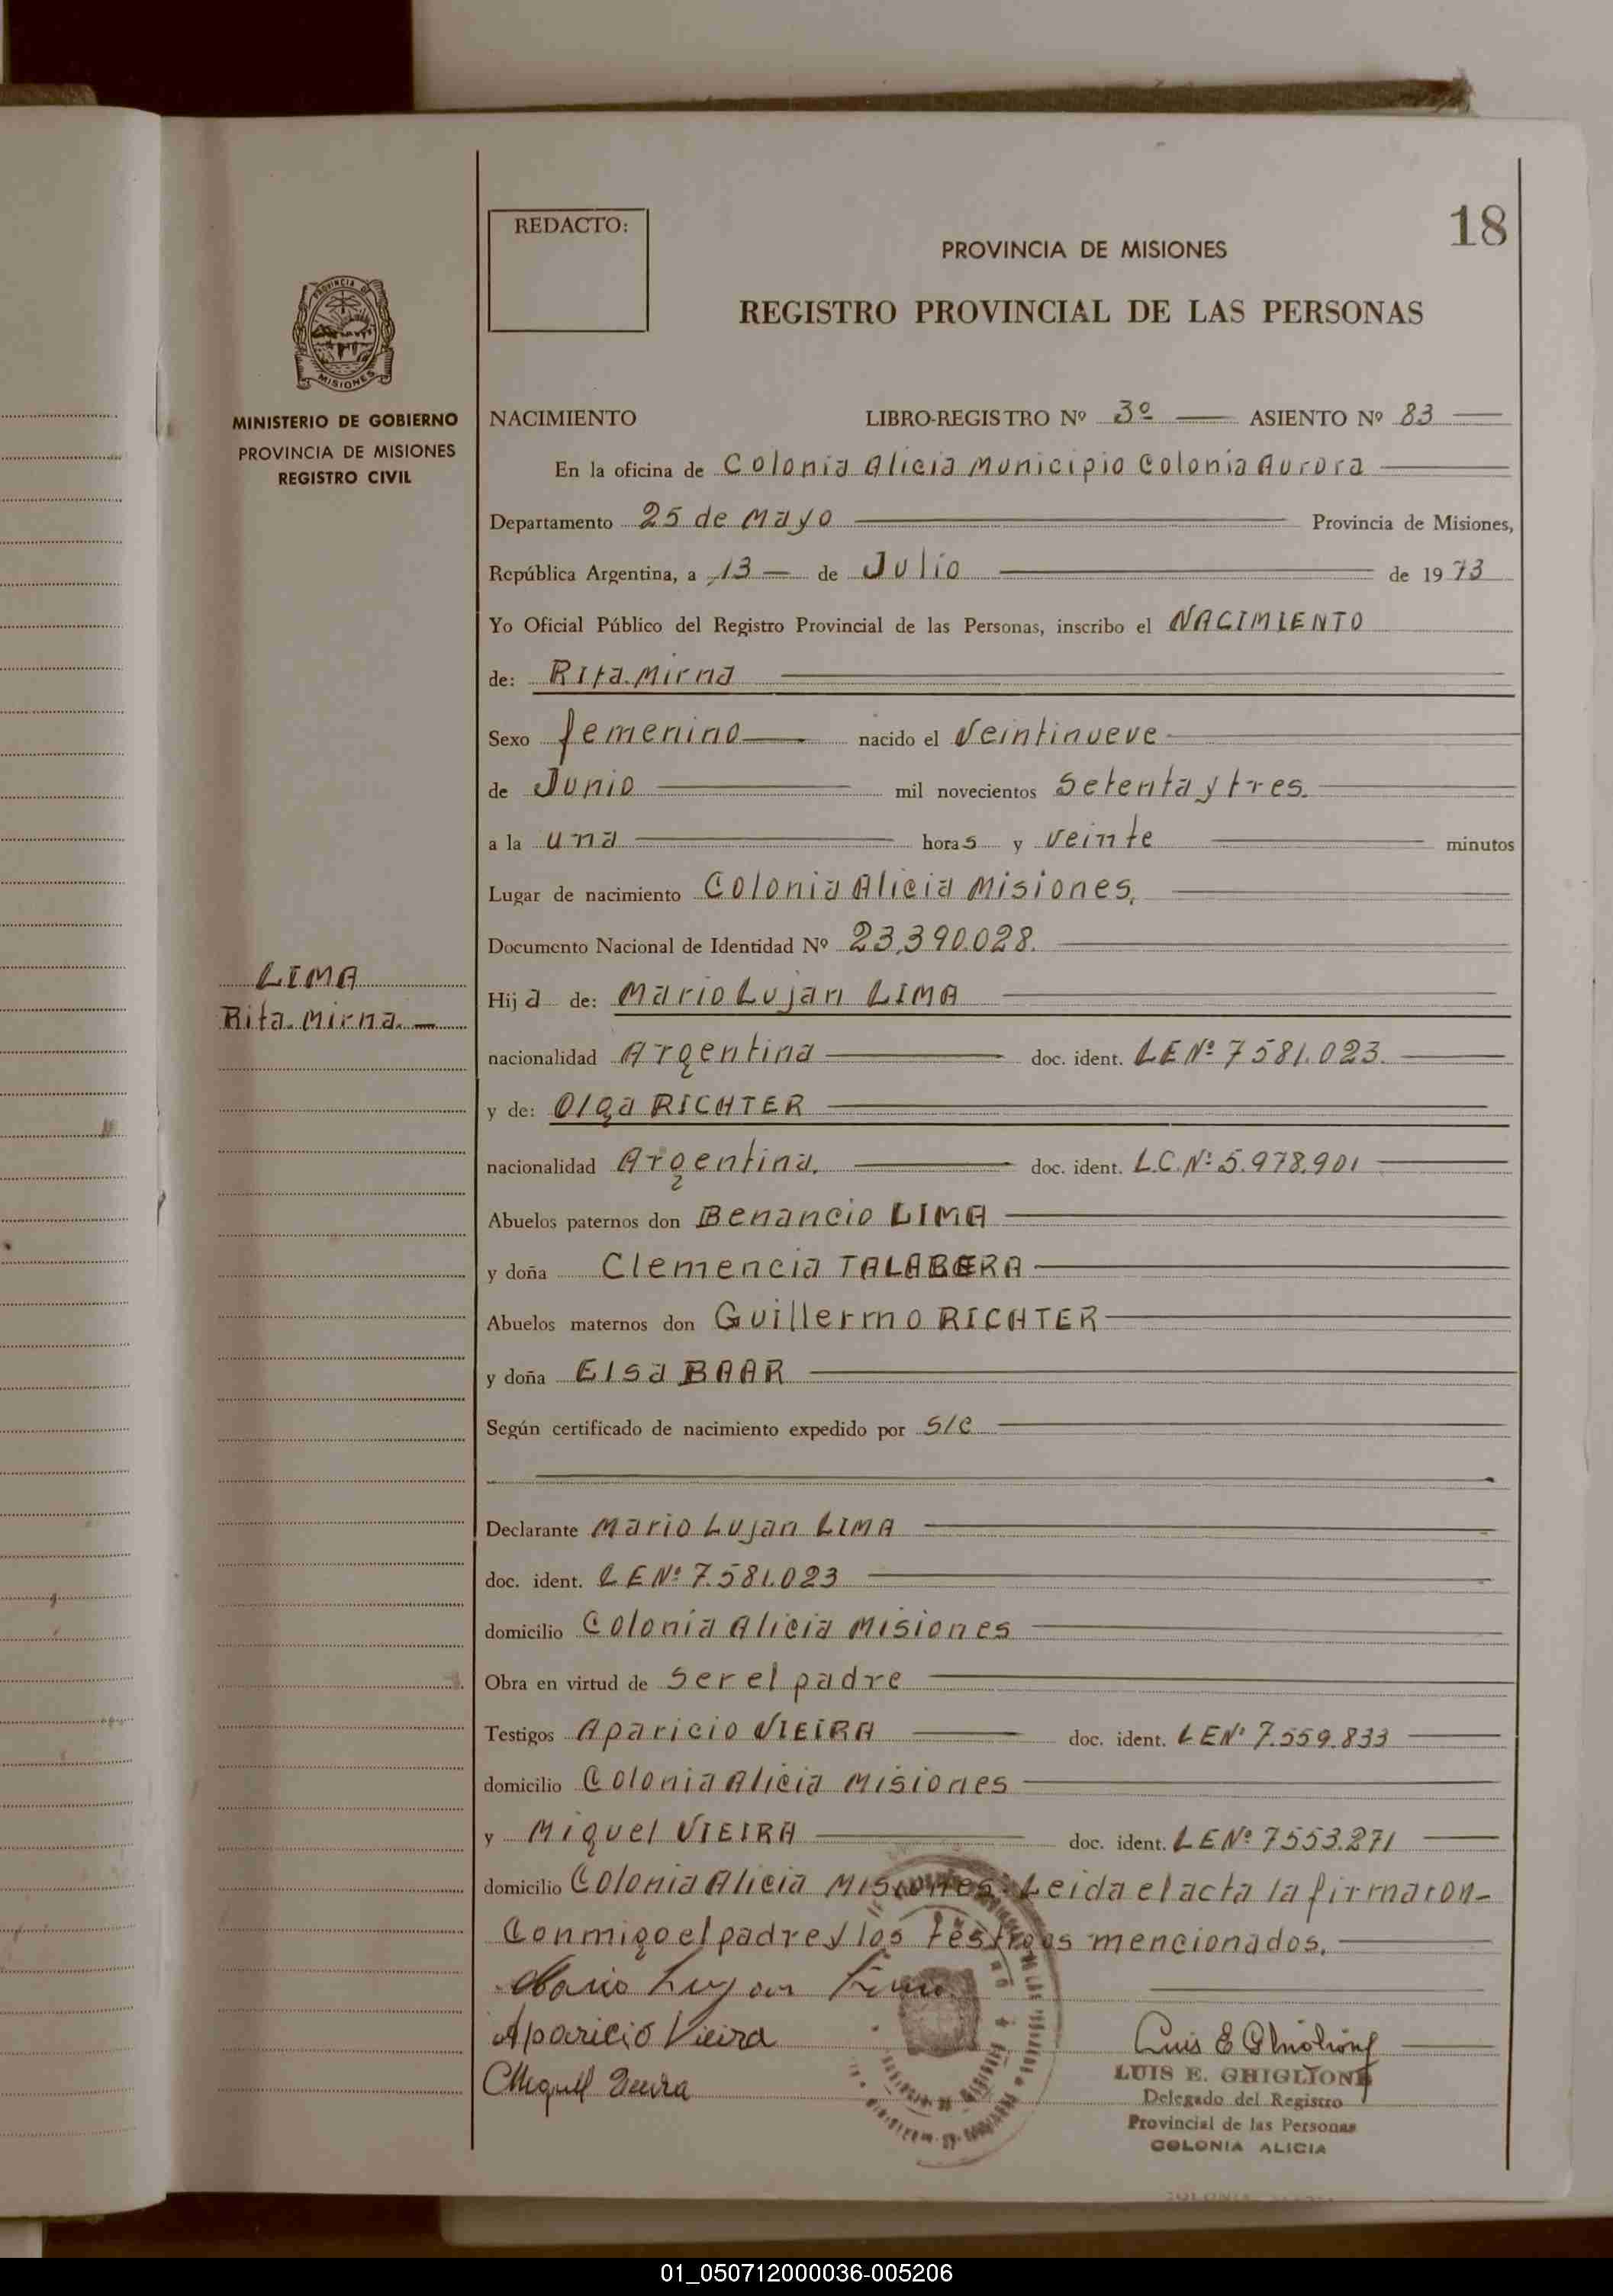 18
REDACTO:
PROVINCIA DE MISIONES
REGISTRO PROVINCIAL DE LAS PERSONAS
PROVINCIA DE
MISIONES
MINISTERIO DE GOBIERNO
PROVINCIA DE MISIONES
REGISTRO CIVIL
LIMA
Rita Mirna.
NACIMIENTO LIBRO-REGISTRO Nº 3º ASIENTO Nº 83
En la oficina de Colonia Alicia Municipio Colonia Aurora
Departamento 25 de Mayo Provincia de Misiones,
República Argentina, a 13 de Julio de 1973
Yo Oficial Público del Registro Provincial de las Personas, inscribo el NACIMIENTO
de: Rita Mirna
Sexo femenino nacido el Veintinueve
de Junio mil novecientos Setenta y tres.
a la una horas y veinte minutos
Lugar de nacimiento Colonia Alicia Misiones,
Documento Nacional de Identidad Nº 23.390.028.
Hija de: Mario Lujan LIMA
nacionalidad Argentina doc. ident. LE Nº 7581.023.
y de: Olga RICHTER
nacionalidad Argentina. doc. ident. L.C. Nº 5.978.901
Abuelos paternos don Benancio LIMA
y doña Clemencia TALABERA
Abuelos maternos don Guillermo RICHTER
y doña Elsa BAAR
Según certificado de nacimiento expedido por S/C
Declarante Mario Lujan LIMA
doc. ident. LE Nº 7.581.023
domicilio Colonia Alicia Misiones
Obra en virtud de Ser el padre
Testigos Aparicio VIEIRA doc. ident. LE Nº 7.559.833
domicilio Colonia Alicia Misiones
y Miguel VIEIRA doc. ident. LE Nº 7553.271
domicilio Colonia Alicia Misiones. Leida el acta la firmaron-
Conmigo el padre y los testigos mencionados.
Mario Lujan Lima
Aparicio Vieira
Miguel Vieira
LUIS E. GHIGLIONE
Delegado del Registro
Provincial de las Personas
COLONIA ALICIA
01_050712000036-005206